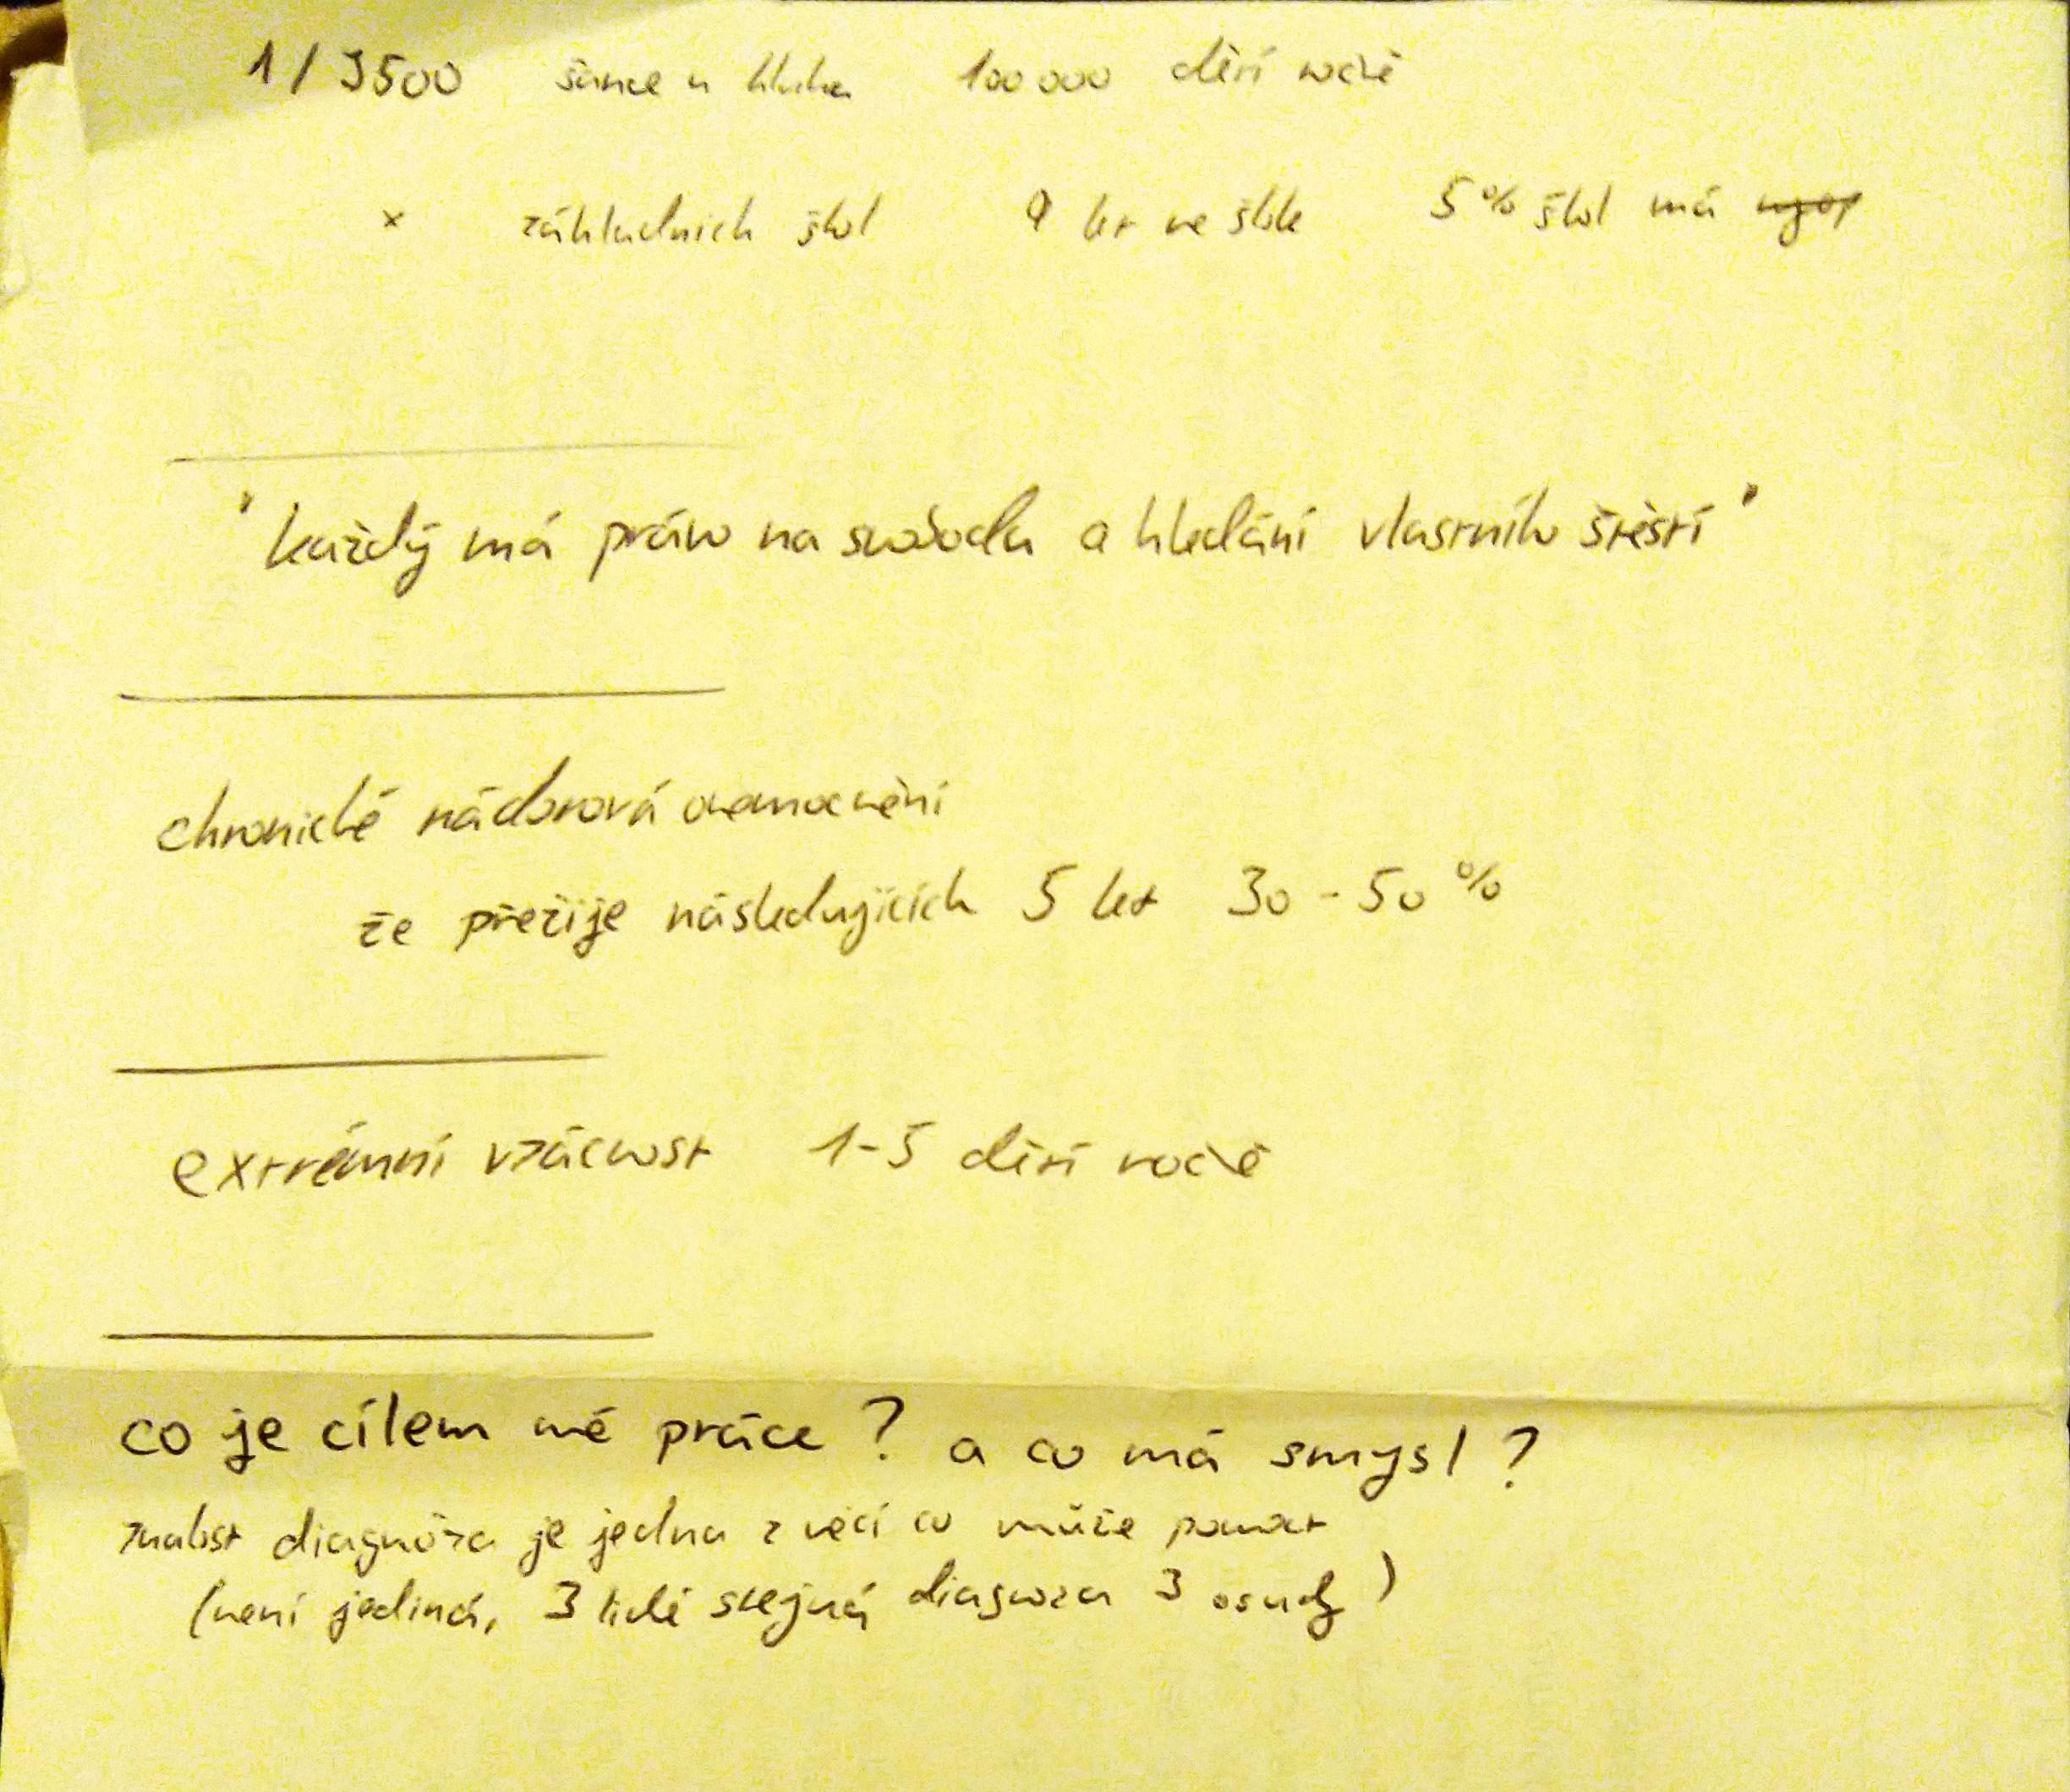 1/3500 šance u kluka 100 000 dětí ročně
x základních škol 9 let ve škole 5% škol má
"každý má právo na svobodu a hledání vlastního štěstí"
chronické nádorová onemocnění
že přežije následujících 5 let 30-50%
extrémní vzácnost 1-5 dětí ročně
co je cílem mé práce? a co má smysl?
znalost diagnóza je jedna z věcí co může pomoct
(není jediná, 3 lidé stejná diagnoza 3 osudy)